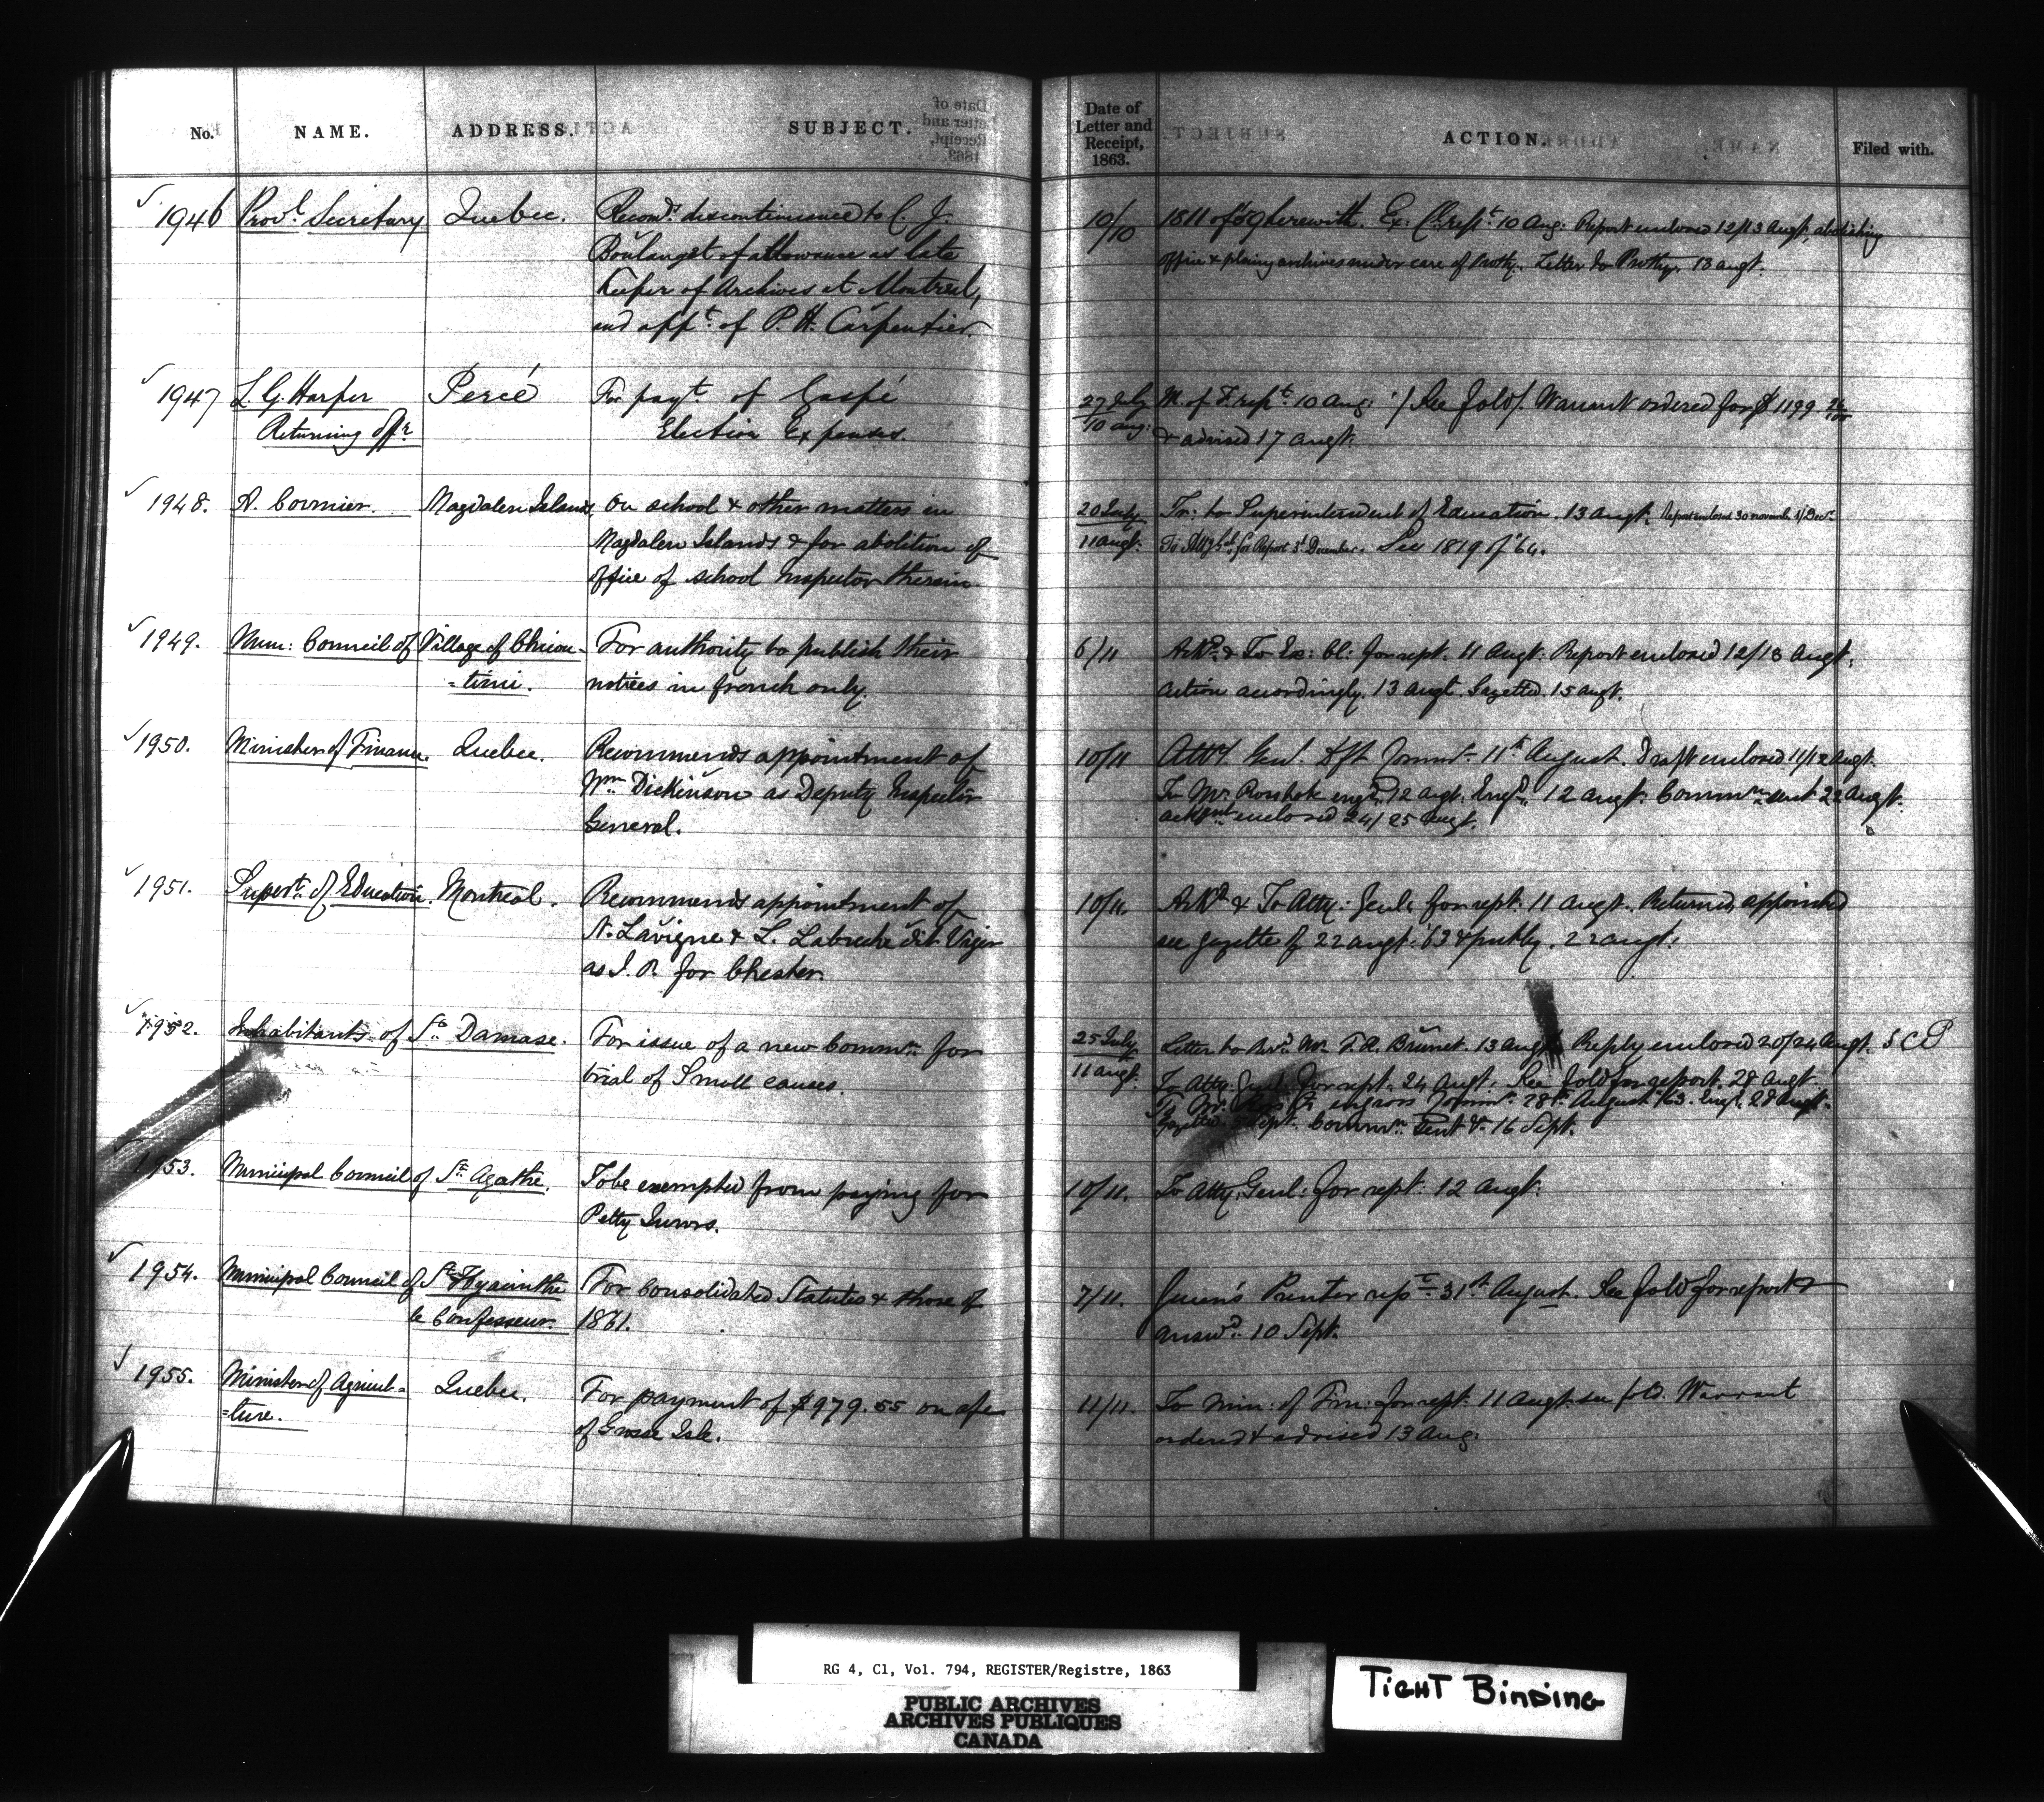 No. NAME. ADDRESS. SUBJECT. Date of Letter and Receipt, 1863. ACTION. Filed with.
1946 Provl. Secretary Quebec. Recomds. discontinuance to C. J.
Boulanget of allowance as late
Keeper of Archives at Montreal,
and appt. of P. H. Carpentier.
10/10 1811 of '59 herewith. Ex: Cl: rept. 10 Aug: Report enclosed 12/13 Augt, abolishing
office & placing archives under care of Prothy. Letter to Prothy. 13 augt.
1947 L. G. Harper Percé For payt. of Gaspé
Returning Offr. Election Expenses.
27 July M. of F. rept. 10 Aug: See fold/. Warrant ordered for $1199
10 aug: & advised 17 augt.
1948. A. Cormier. Magdalen Islands On school & other matters in
Magdalen Islands & for abolition of
office of school Inspector therein
20 July Tr: to Superintendent of Education. 13 augt. Report enclosed 30 novemb 1/ Decr.
11 augt. for Report 3d. December. See 1819 of '64.
1949. Mun: Council of Village of Chicou- For authority to publish their
=timi. notices in french only.
6/11 Ackd. & To Ex: Cl: for rept. 11 Augt. Report enclosed 12/13 Augt.
action accordingly. 13 Augt. Gazetted 15 augt.
1950. Minister of Finance. Quebec. Recommends appointment of
Wm. Dickinson as Deputy Inspector
General.
10/11 Atty. Genl. dft Commn. 11th August. Draft enclosed 11/12 augt.
To Mr. engrd. 12 augt. Engd. 12 augt. Commn. sent 22 Augt.
enclosed 24/25 augt.
1951. Supert. of Education. Montreal. Recommends appointment of
N. Lavigne & L. Labreche dit Viger
as J. P. for Chester.
10/11. Ackd. & To Atty: Genl. for rept. 11 augt. Returned, appointed
see gazette of 22 augt. '63 & publy. 22 augt.
1952. Inhabitants of St. Damase. For issue of a new Commn. for
trial of Small causes.
25 July Letter to Revd. Mr. F. R. Brunet. 13 augt. Reply enclosed 20/24 Augt. S C P
11 augt. To Atty. Genl. for rept. 24 Augt. See fold for report. 28 Augt.
To Mr. engross Commn. 28th August '63. Engd. 28 Augt.
Gazetted Sept. Commn. sent &c. 16 Sept.
1953. Municipal Council of Ste. Agathe. To be exempted from paying for
Petty Jurors.
10/11. To Atty. Genl: for rept: 12 Augt.
1954. Municipal Council of St. Hyacinthe For Consolidated Statutes & those of
le Confesseur. 1861.
7/11. Queen's Printer rept. 31st August. See fold for report &
answd. 10 Sept.
1955. Minister of Agricul= Quebec. For payment of $979.55 on a/c
=ture. of Grosse Isle.
11/11. To Min: of Fin: for rept. 11 Augt. see fold. Warrant
ordered & advised 13 Aug:
RG 4, C1, Vol. 794, REGISTER/Registre, 1863
PUBLIC ARCHIVES
ARCHIVES PUBLIQUES
CANADA
TIGHT BINDING